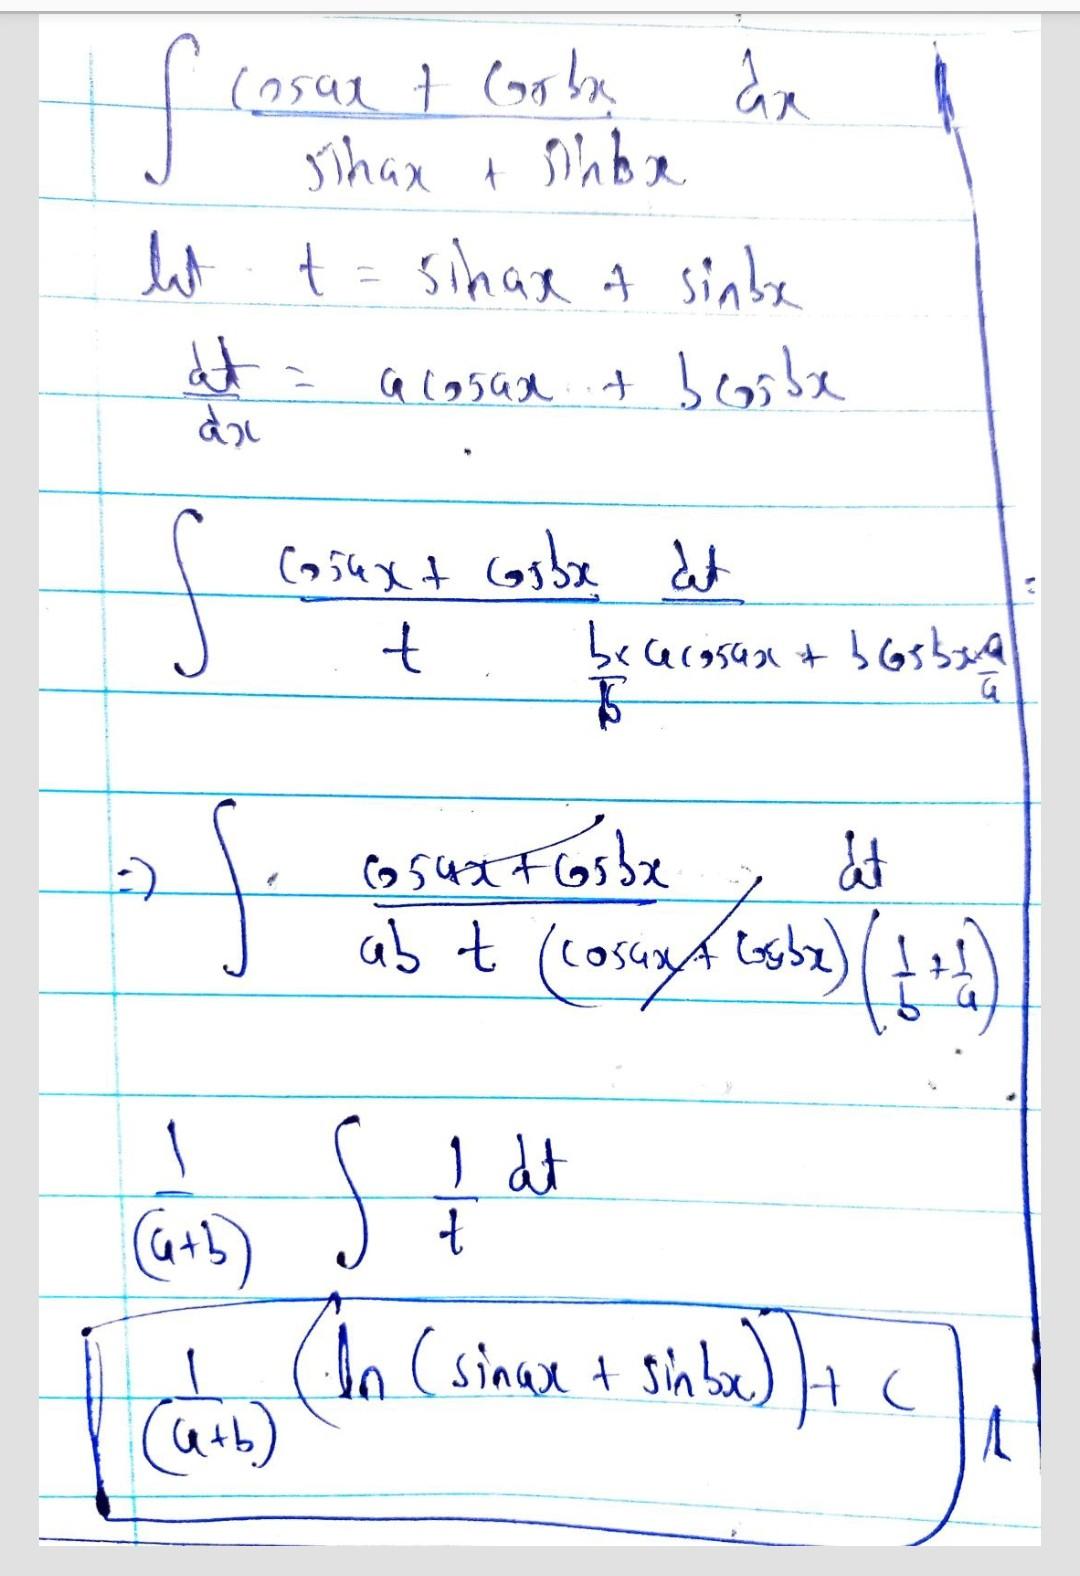 ∫ (cosax + cosbx)/(sinax + sinbx) dx
let t = sinax + sinbx
dt/dx = a cosax + b cosbx
∫ (cosax + cosbx)/t dt/(b/b × a cosax + b cosbx × a/a) =
=> ∫ (cosax + cosbx)/(ab t (cosax + cosbx)(1/b + 1/a)) dt
1/(a+b) ∫ 1/t dt
1/(a+b) (ln (sinax + sinbx)) + c